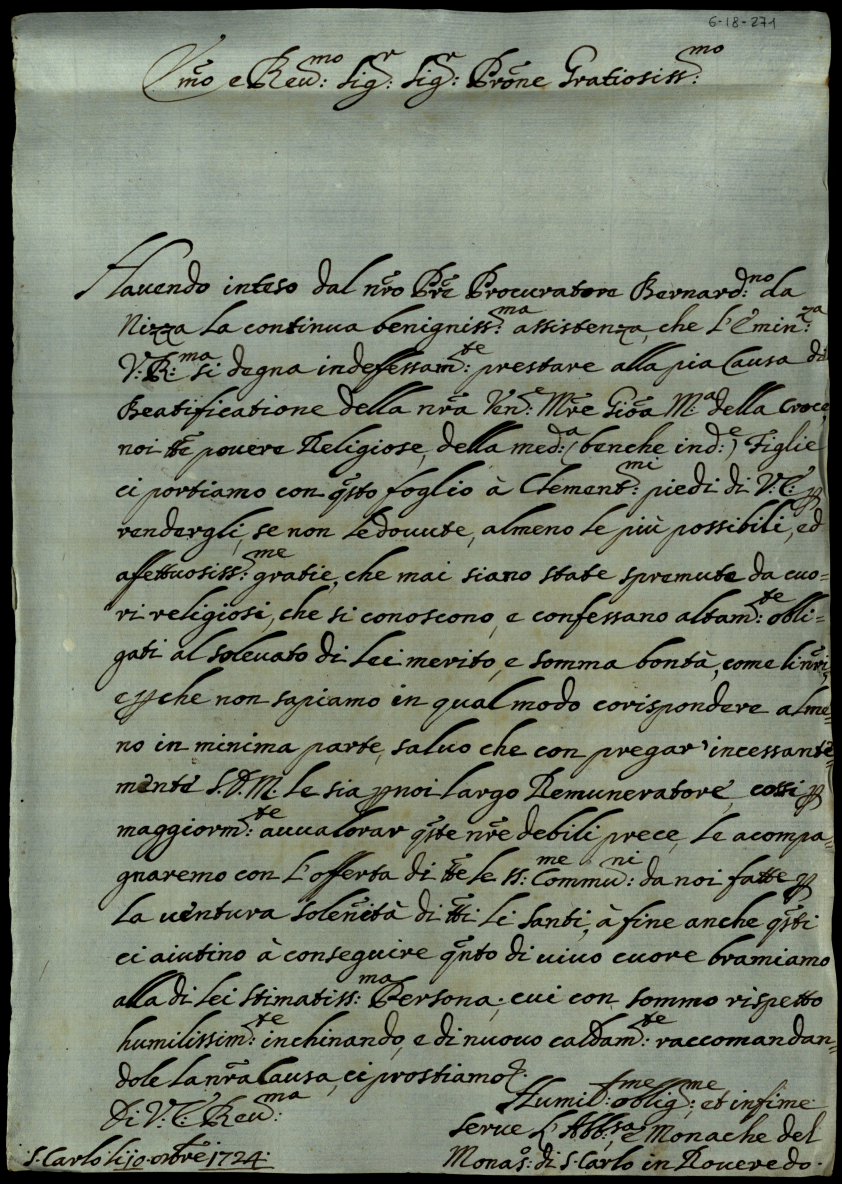 6-18-271
Emõ e Reu:mo Sig:r Sig:r Prõne Gratiosiss:mo
Hauendo inteso dal nr̃o Pr̃e Procuratore Bernard:no da
Nizza la continua benigniss:ma assistenza, che L'Emin:za
V:R:ma si degna indefessam:te prestare alla pia Causa di
Beatificatione della nr̃a Ven:e Mr̃e Gioã M:a della Croce
noi tt̃e pouere Religiose, della med:a (benche ind:e) Figlie
ci portiamo con qs̃to foglio à Clement:mi piedi di V:E: p
rendergli, se non le douute, almeno le più possibili, ed
afettuosiss:me gratie, che mai siano state spremute da cuo=
ri religiosi, che si conoscono, e confessano altam:te obli=
gati al soleuato di Lei merito, e somma bontà, come li nr̃i,
e pche non sapiamo in qual modo corispondere alme=
no in minima parte, saluo che con pregar' incessante=
mente S.D.M. le sia p noi largo Remuneratore, cossi p
maggiorm:te auualorar qs̃te nr̃e debili prece, le acompa=
gnaremo con L'offerta di tt̃e le SS:me Commu:ni da noi fatte p
la uentura soleñità di tt̃i li Santi, à fine anche qs̃ti
ci aiutino à conseguire qñto di uiuo cuore bramiamo
alla di Lei stimatiss:ma Persona; cui con sommo rispetto
humilissim:te inchinando, e di nuouo caldam:te raccomandan=
dole la nr̃a Causa, ci prostiamo.
Di V:E: Reu:ma
Humil:me oblig:me et infime
Serue L'Abb:sa, e Monache del
Monas:o di S. Carlo in Roueredo.
S. Carlo li 10. ottbre 1724.